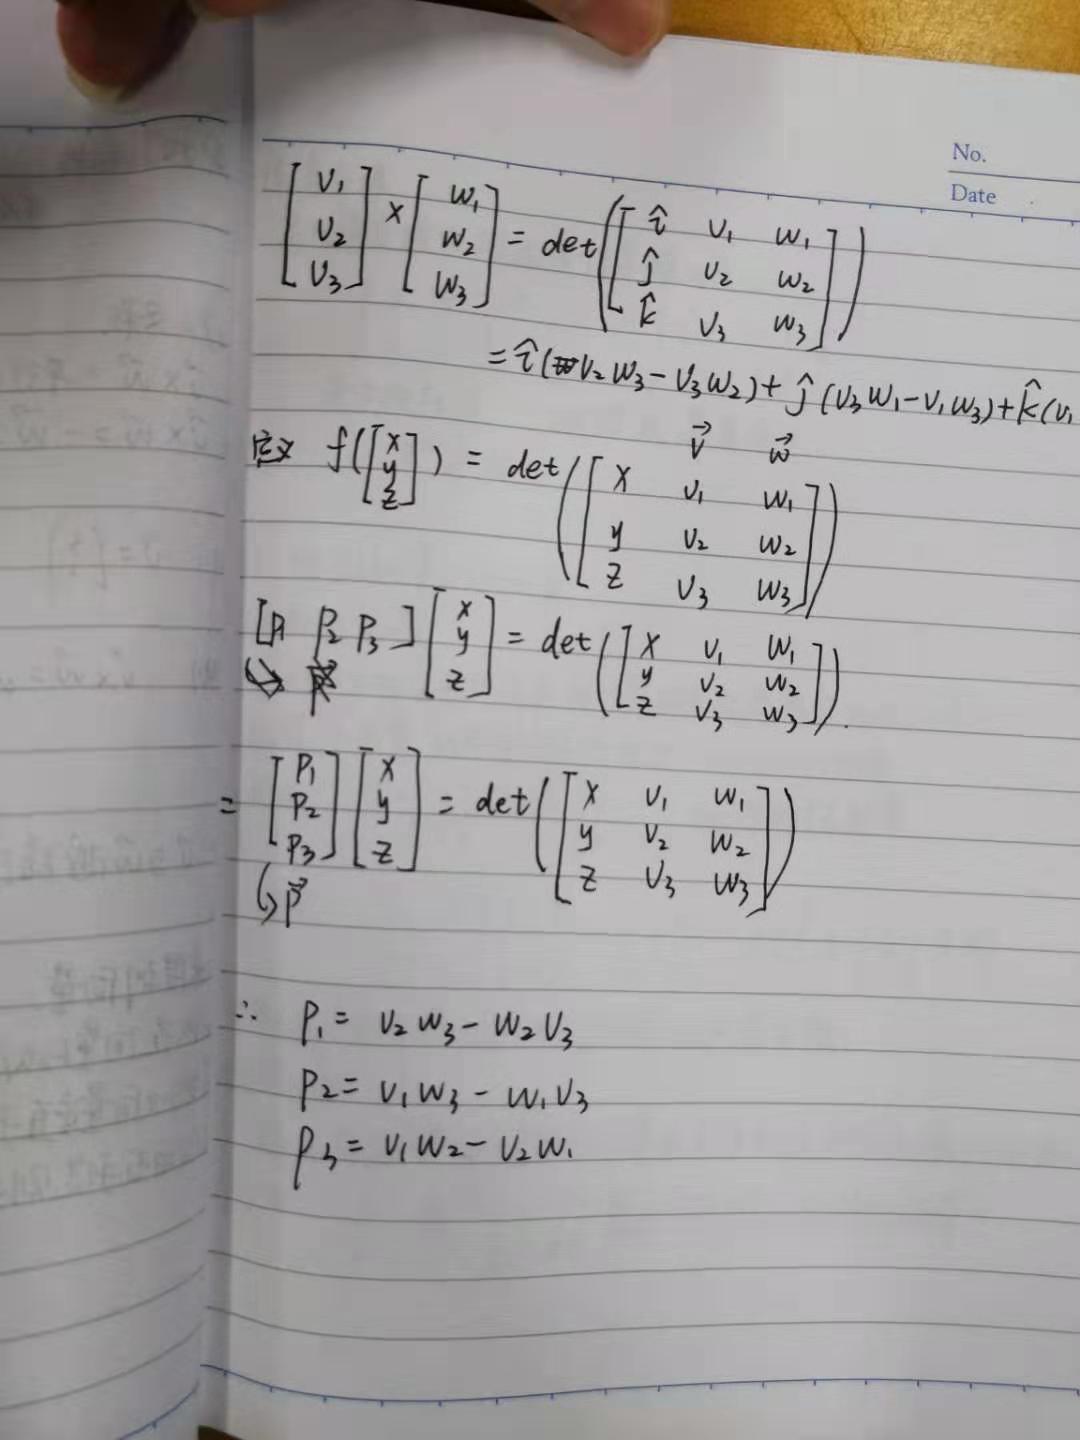 No.
Date
[v₁ v₂ v₃] × [w₁ w₂ w₃] = det([î v₁ w₁ ĵ v₂ w₂ k̂ v₃ w₃])
= î(v₂w₃ − v₃w₂) + ĵ(v₃w₁ − v₁w₃) + k̂(v₁
v⃗ w⃗
定义 f([x y z]) = det([x v₁ w₁ y v₂ w₂ z v₃ w₃])
[p₁ p₂ p₃][x y z] = det([x v₁ w₁ y v₂ w₂ z v₃ w₃]).
= [p₁ p₂ p₃][x y z] = det([x v₁ w₁ y v₂ w₂ z v₃ w₃])
↳ p⃗
∴ p₁ = v₂w₃ − w₂v₃
p₂ = v₁w₃ − w₁v₃
p₃ = v₁w₂ − v₂w₁